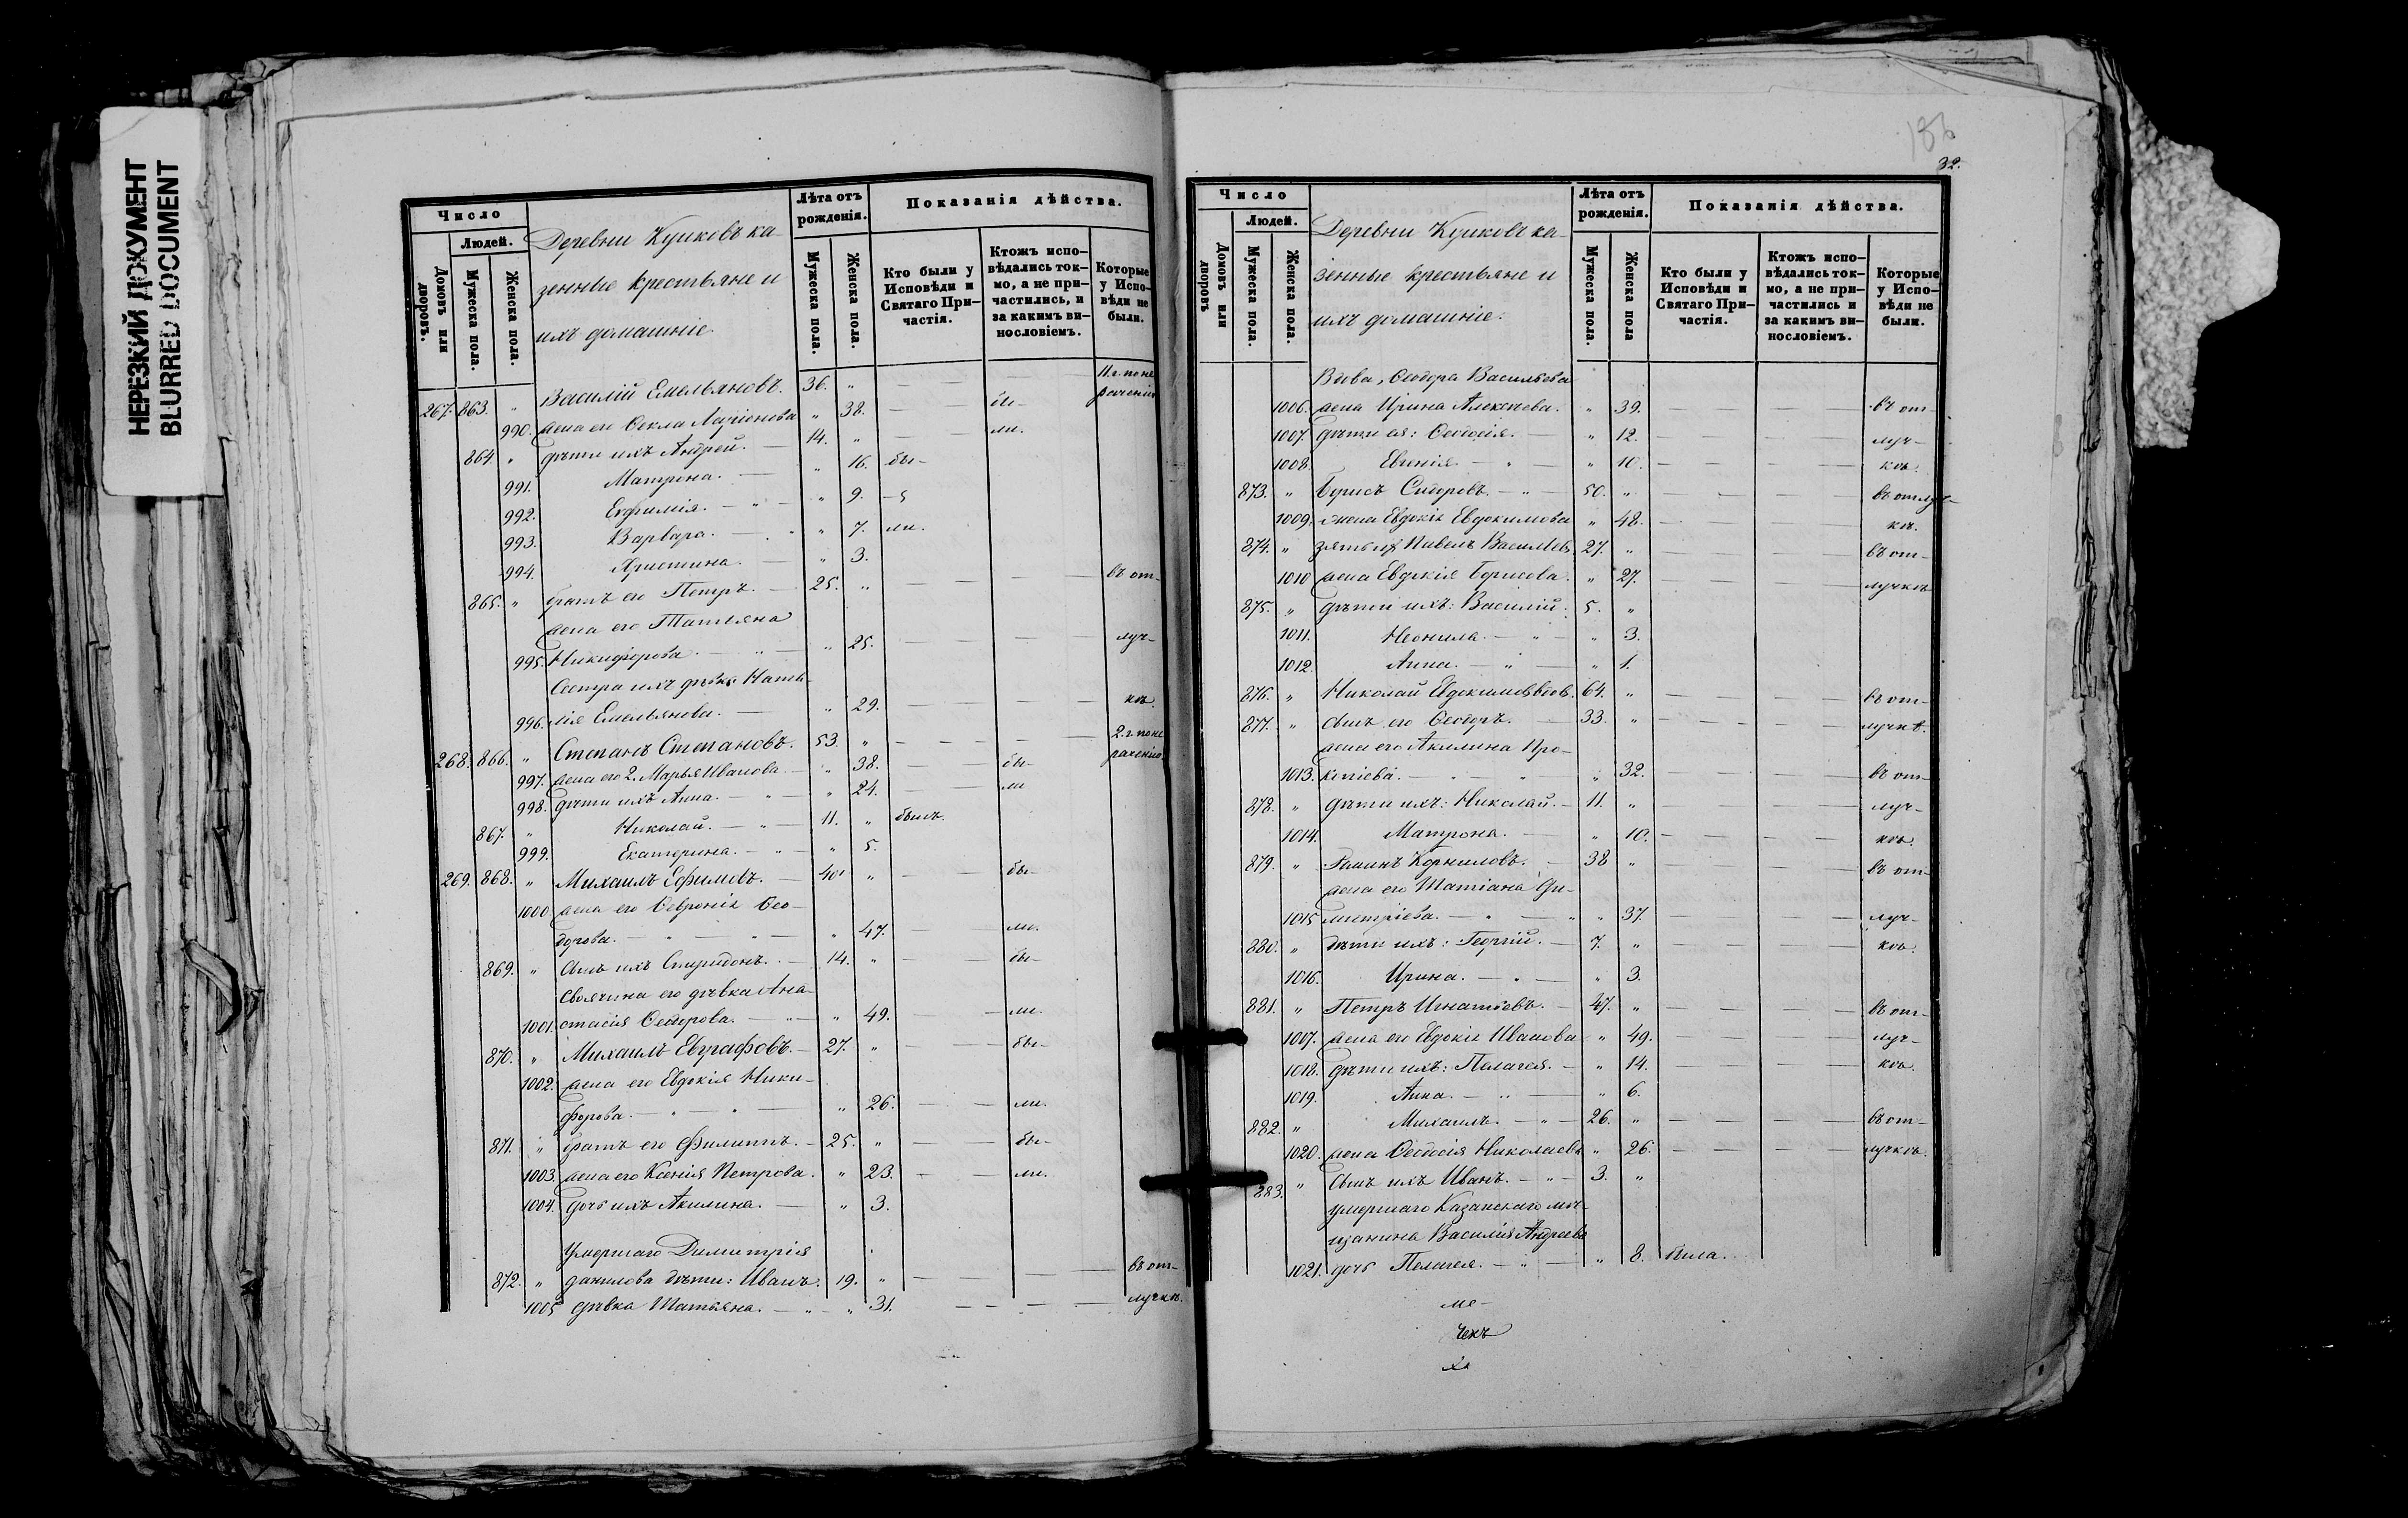 НЕРЕЗКИЙ ДОКУМЕНТ
BLURRED DOCUMENT
Число
Людей.
Домовъ или дворовъ.
Мужеска пола.
Женска пола.
Деревни Куликовъ ка-
зенные крестьяне и
ихъ домашніе.
Лѣта отъ рожденія.
Мужеска пола.
Женска пола.
Показанія дѣйства.
Кто были у Исповѣди и Святаго При-частія.
Ктожъ испо-вѣдались ток-мо, а не при-частились, и за какимъ ви-нословіемъ.
Которые у Испо-вѣди не были.
267. 863. " Василій Емельяновъ. 36. " — — 11. г. по не
рачению
990. жена его Ѳекла Ларіонова " 38. — бы-
864. " дѣти ихъ Андрей. — 14. " — — ли.
991. Матрона. — " 16. бы-
992. Евфимія. — " — " 9. —
993. Варвара. — " " 7. ли.
994. Христина. — " 3.
865. " братъ его Петръ. — 25. " — — — — въ от-
жена его Татьяна
995. Никифорова. — " — " 25. — — — — луч-
Сестра ихъ дѣвка Ната-
996. лія Емельянова. — " 29. — — — — кѣ.
268. 866. " Степанъ Степановъ. 53. " — — — — 2. г. по не
рачению
997. жена его 2. Марья Иванова. — " 38. — — бы-
998. дѣти ихъ Анна. — " — " 24. — — ли
867. " Николай. — " — 11. " былъ.
999. Екатерина. — " — " 5.
269. 868. " Михаилъ Ефимовъ. — 40. " — — бы-
1000. жена его Февронія Ѳео-
дорова. — " — " — " 47. — — ли.
869. " Сынъ ихъ Спиридонъ. — 14. " — — бы-
Своячина его дѣвка Ана-
1001. стасія Ѳеодорова. — " — " 49. — ли.
870. " Михаилъ Евграфовъ. — 27. " — — бы-
1002. жена его Евдокія Ники-
форова. — " — " — " 26. — — ли.
871. " братъ его Филиппъ. — 25. " — — бы-
1003. жена его Ксенія Петрова. " 23. — — ли.
1004. дочь ихъ Акилина. — " 3.
Умершаго Димитрія
872. " Данилова дѣти: Иванъ. 19. " — — — въ от-
1005 дѣвка Татьяна. — " — " 31. — — — — лучкѣ.
186
32.
Число
Людей.
Домовъ или дворовъ
Мужеска пола.
Женска пола.
Деревни Куликовъ ка-
зенные крестьяне и
ихъ домашніе.
Лѣта отъ рожденія.
Мужеска пола.
Женска пола
Показанія дѣйства.
Кто были у Исповѣди и Святаго При-частія.
Ктожъ испо-вѣдались ток-мо, а не при-частились и за какимъ ви-нословіемъ.
Которые у Испо-вѣди не были.
Вдова, Ѳеодора Васильева
1006. жена Ирина Алексѣева. " 39. въ от-
1007. дѣти ея: Ѳеодосія. — " 12. — — — — луч-
1008. Евгенія. — " — " 10. — — — — кѣ.
873. " Борисъ Сидоровъ. — " — 50. " — — въ отлуч-
1009. жена Евдокія Евдокимова " 48. — — — — кѣ.
874. " зять их Павелъ Васильев 27. " — — — въ от-
1010 жена Евдокія Борисова. " 27. — — — — лучкѣ
875. " дѣти ихъ: Василій. 5. "
1011. Неонила. — " — " 3.
1012. Анна. — " — " 1.
876. " Николай Евдокимов вдов. 64. " — — — — въ от-
877. " сынъ его Ѳеодоръ. — 33. " — — — — лучкѣ.
жена его Акилина Про-
1013. копіева. — " — " " 32. — — — — въ от-
878. " дѣти ихъ: Николай. — 11. " — — — — луч-
1014. Матрона. — " 10. — — — — кѣ.
879. " Романъ Корниловъ. — 38 " — — — — въ от-
жена его Татіана Ди-
1015 митріева. — " — " " 37. — — — луч-
880. " дѣти ихъ: Георгій. — 7. " — — — — кѣ.
1016. Ирина. — " — " 3.
881. " Петръ Игнатьевъ. — 47. " — — — — въ от-
1007. жена его Евдокія Иванова " 49. — — — — луч-
1018. дѣти ихъ: Пелагея. — " 14. — — — — кѣ.
1019. Анна. — " — " 6.
882. " Михаилъ. — " — 26. " — — — — въ от-
1020. жена Ѳеодосія Николаева " 26. — — — — лучкѣ.
883. " Сынъ ихъ Иванъ. — " — 3. "
умершаго Казанскаго мѣ-
щанина Василія Андреева
1021. дочь Пелагея. — " — " 8. была.